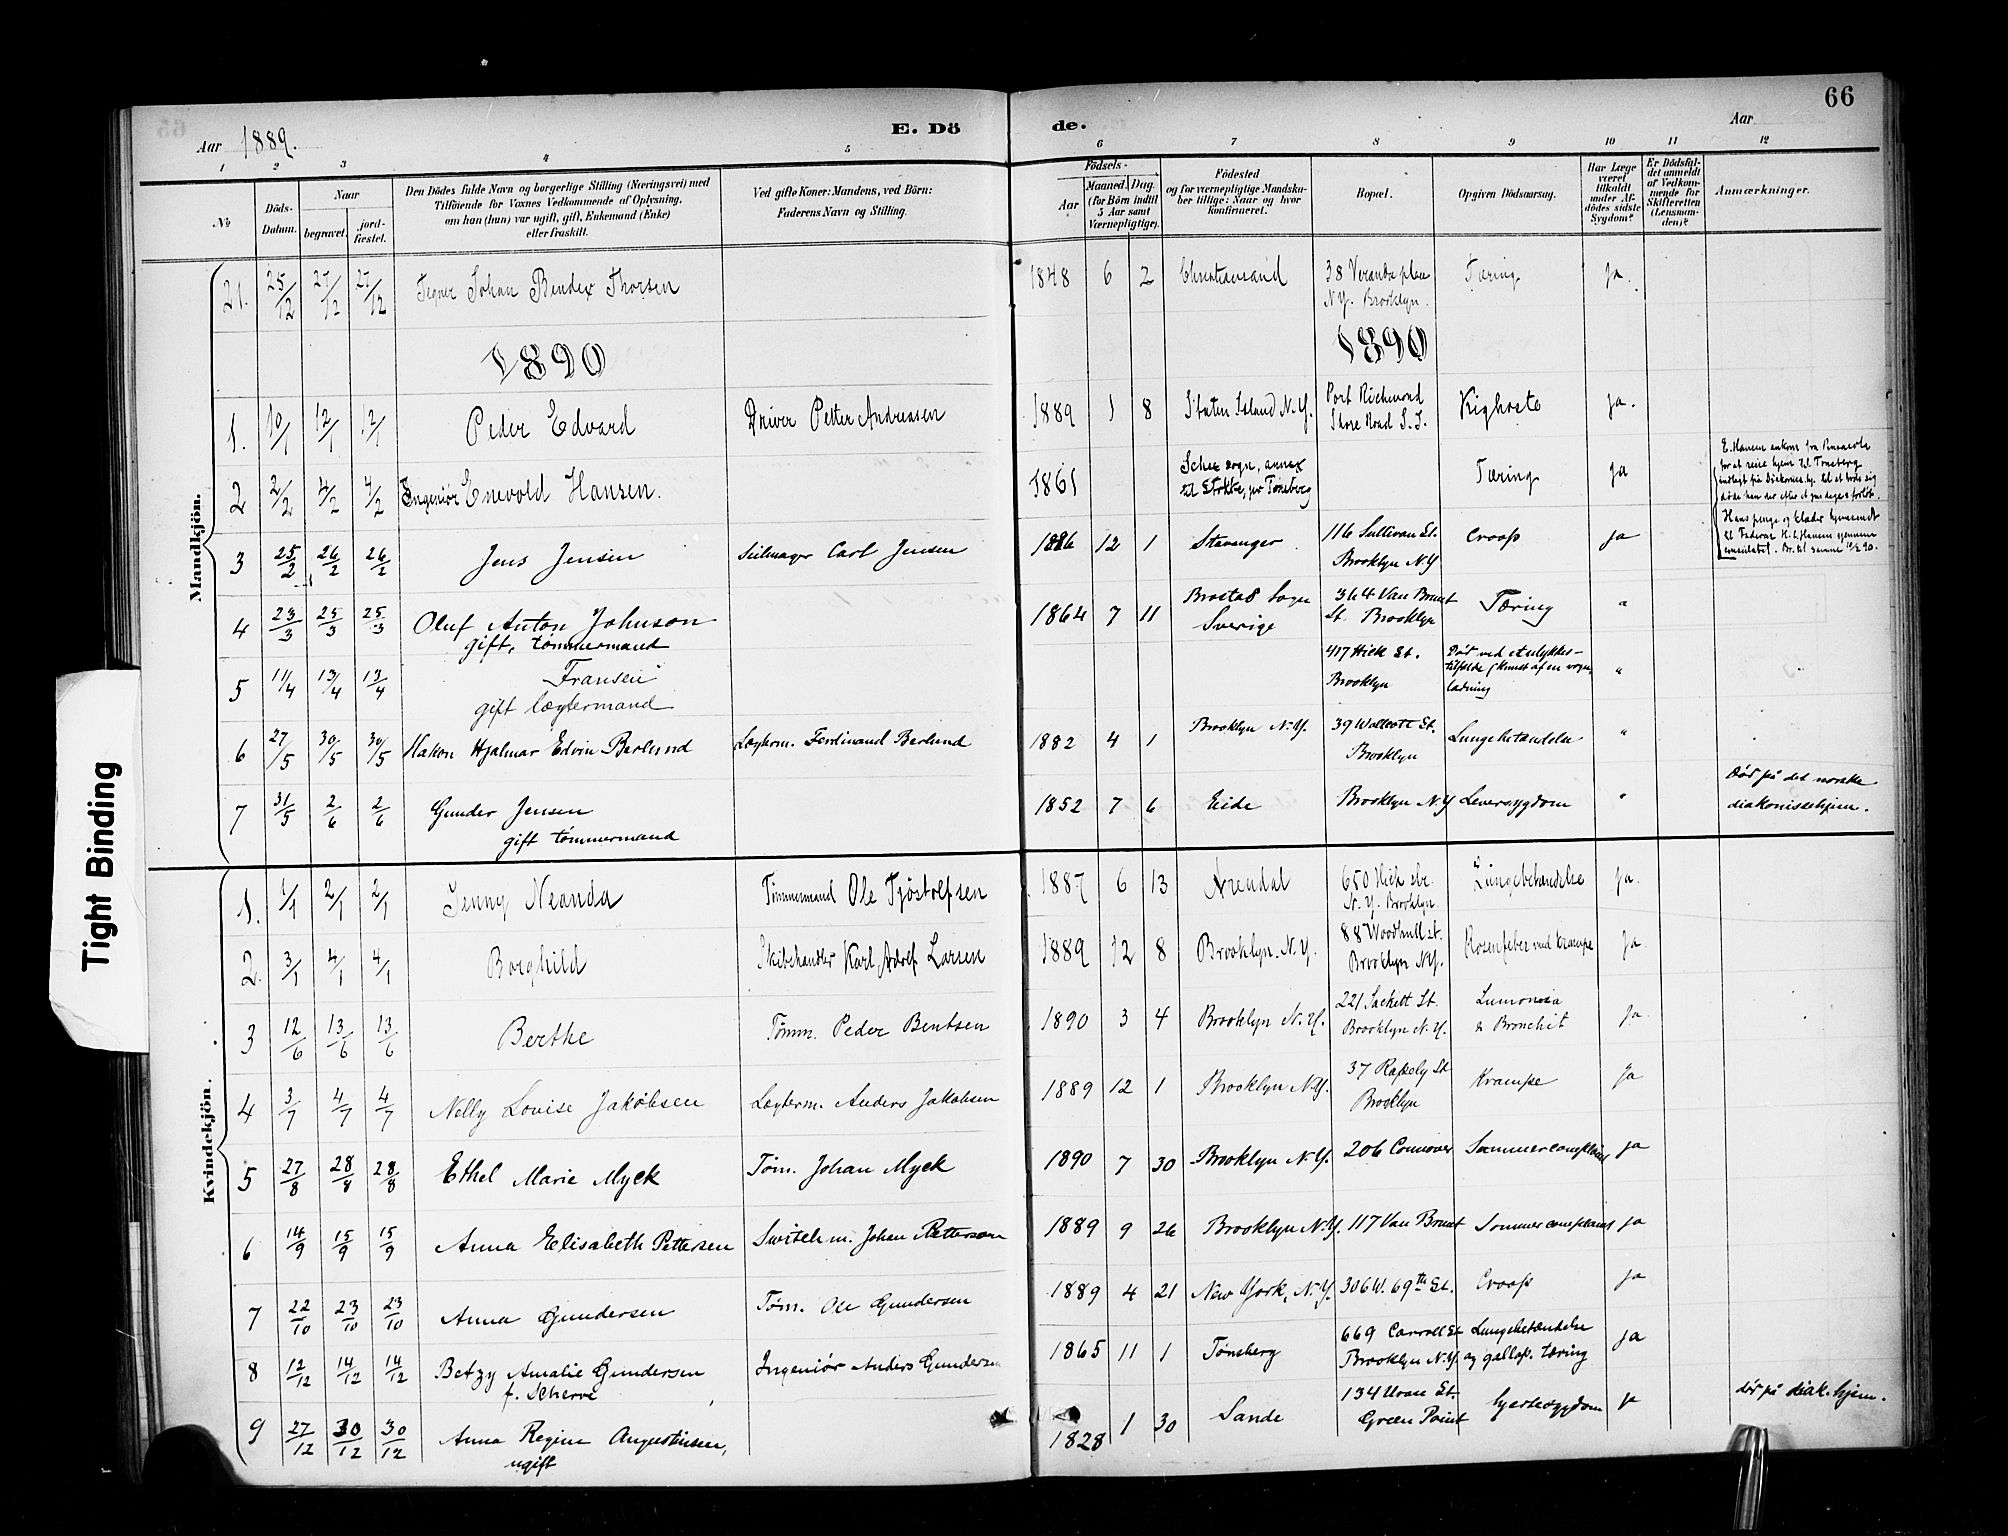 66
Aar 1889.
E. Dö de.
Aar
1 2 3 4 5 6 7 8 9 10 11 12
No
Döds-Datum.
Naar
begravet.
jord-fæstet.
Den Dödes fulde Navn og borgerlige Stilling (Næringsvei) med
Tilföiende for Voxnes Vedkommende af Oplysning,
om han (hun) var ugift, gift, Enkemand (Enke)
eller fraskilt.
Ved gifte Koner: Mandens, ved Börn:
Faderens Navn og Stilling.
Födsels-
Aar
Maaned Dag
(for Börn indtil
5 Aar samt
Værnepligtige).
Födested
og for værnepligtige Mandska-
ber tillige: Naar og hvor
konfirmeret.
Bopæl.
Opgiven Dödsaarsag.
Har Læge
været
tilkaldt
under Af-
dödes sidste
Sygdom?
Er Dödsfal-
det anmeldt
af Vedkom-
mende for
Skifteretten
(Lensman-
den)?
Anmærkninger.
Mandkjön.
21. 25/12 27/12 27/12 Tegner Johan Bendex Thorsen 1848 6 2 Christiansand 38 Veranda place N.Y. Brooklyn. Tæring Ja.
1890 1890
1. 10/1 12/1 12/1 Peder Edvard Driver Petter Andreassen 1889 1 8 Staten Island N.Y. Port Richmond Shore Road S.I. Kighoste Ja.
2 2/2 4/2 4/2 Ingeniör Enevold Hansen. 1861 sogn, annex til Stokke, pr Tønsberg Tæring Ja
E. Hansen ankom fra
for at reise hjem til Tønsberg
indlagt på Diakonisehj. til at hvile sig
døde han der efter et par dages forløb.
Hans penge og klæder hjemsendt
til Faderen H. Hansen gjennem
consulatet. Br. til samme
3 25/2 26/2 26/2 Jens Jensen Seilmager Carl Jensen 1886 12 1 Stavanger 116 Sullivan St. Brooklyn N.Y Croop ja
4 23/3 25/3 25/3 Oluf Anton Johnson
gift, tømmermand 1864 7 11 Brastad Sogn Sverige 364 Van Brunt St. Brooklyn Tæring "
5 11/4 13/4 13/4 Fransen
gift lægtermand 417 Hick St. Brooklyn Død ved et ulykkes-
tilfælde af en vogn
ladning "
6 27/5 30/5 30/5 Hakon Hjalmar Edvin Berlund Lægterm. Ferdinand Berlund 1882 4 1 Brooklyn N.Y. 39 Wallcott St. Brooklyn Lungebetændelse "
7 31/5 2/6 2/6 Gunder Jensen
gift tømmermand 1852 7 6 Eide Brooklyn N.Y Leversygdom " Død på det norske
diakonissehjem.
Kvindekjön.
1. 1/1 2/1 2/1 Jenny Neanda Tømmermand Ole Tjöstolfsen 1887 6 13 Arendal 650 Hick str. N.Y. Brooklyn. Lungebetændelse Ja.
2. 3/1 4/1 4/1 Borghild Skibshandler Karl Adolf Larsen 1889 12 8 Brooklyn. N.Y. 88 Woodhull st. Brooklyn N.Y. Rosenfeber med Krampe Ja
3 12/6 13/6 13/6 Berthe Tømm. Peder Bentsen 1890 3 4 Brooklyn N.Y. 221 Sackett St. Brooklyn N.Y. Lumonia & Bronchit Ja
4 3/7 4/7 4/7 Nelly Lovise Jakobsen Lægterm. Anders Jakobsen 1889 12 1 Brooklyn N.Y. 37 Rapely St Brooklyn Krampe Ja
5 27/8 28/8 28/8 Ethel Marie Myck Tøm. Johan Myck 1890 7 30 Brooklyn N.Y. 206 Connover Sommercomplaint ja
6 14/9 15/9 15/9 Anna Elisabeth Pettersen Switch m. Johan Pettersen 1889 9 26 Brooklyn N.Y. 117 Van Brunt Sommercomplaint ja
7 22/10 23/10 23/10 Anna Gundersen Tøm. Ole Gundersen 1889 4 21 New York, N.Y. 306 W. 69th St. Croop ja
8 12/12 14/12 14/12 Betzy Amalie Gundersen
f. Scherve Ingeniör Anders Gundersen 1865 11 1 Tønsberg 669 Carroll St Brooklyn N.Y. Lungebetændelse og gallop. tæring ja
9 27/12 30/12 30/12 Anna Regine Augustinsen,
ugift 1828 1 30 Sande 134 St. Green Point hjertesygdom ja død på diak. hjem.
Tight Binding